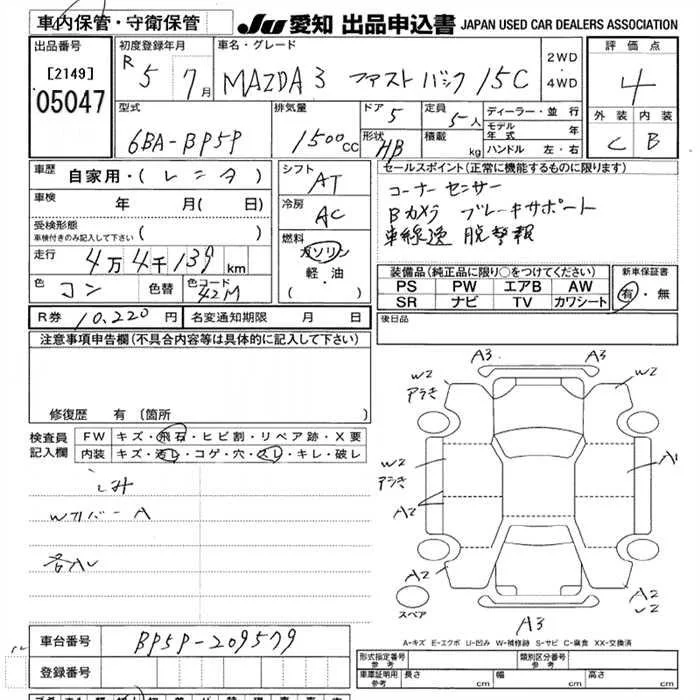 車内保管・守衛保管
JU 愛知 出品申込書 JAPAN USED CAR DEALERS ASSOCIATION
出品番号
[2149]
05047
初度登録年月
R 5 7月
車名・グレード
MAZDA3 ファストバック 15C
2WD
・
4WD
評価点
4
外装 内装
C B
型式
6BA-BP5P
排気量
1500cc
ドア 5
形状 HB
定員 5人
積載 kg
ディーラー・並行
モデル年式 年
ハンドル 左・右
車歴 自家用・( レンタ )
車検 年 月( 日)
受検形態
車検付きのみ記入して下さい ( )
走行 4万4千139km
色 コン 色替 色コード 42M
シフト AT
冷房 AC
燃料
ガソリン
軽・油
( ・ )
セールスポイント(正常に機能するものに限ります)
コーナーセンサー
Bカメラ ブレーキサポート
車線逸脱警報
装備品(純正品に限り○をつけてください)
PS PW エアB AW
SR ナビ TV カワシート
新車保証書
有・無
R券 10,220円 名変通知期限 月 日
後日品
注意事項申告欄(不具合内容等は具体的に記入して下さい)
修復歴 有 〔箇所
検査員記入欄
FW キズ・飛石・ヒビ割・リペア跡・X要
内装 キズ・汚レ・コゲ・穴・スレ・キレ・破レ
シミ
Wカバー A
各スレ
A3 A3
W2 アラキ
W2
W2
アラキ
A2
A1
A2
A2
A3
スペア
A-キズ E-エクボ U-凹み W-補修跡 S-サビ C-腐食 XX-交換済
車台番号 BP5P-209579
登録番号
形式指定番号 参考
類別区分番号 参考
車庫証明用 参考 長さ cm 幅 cm 高さ cm